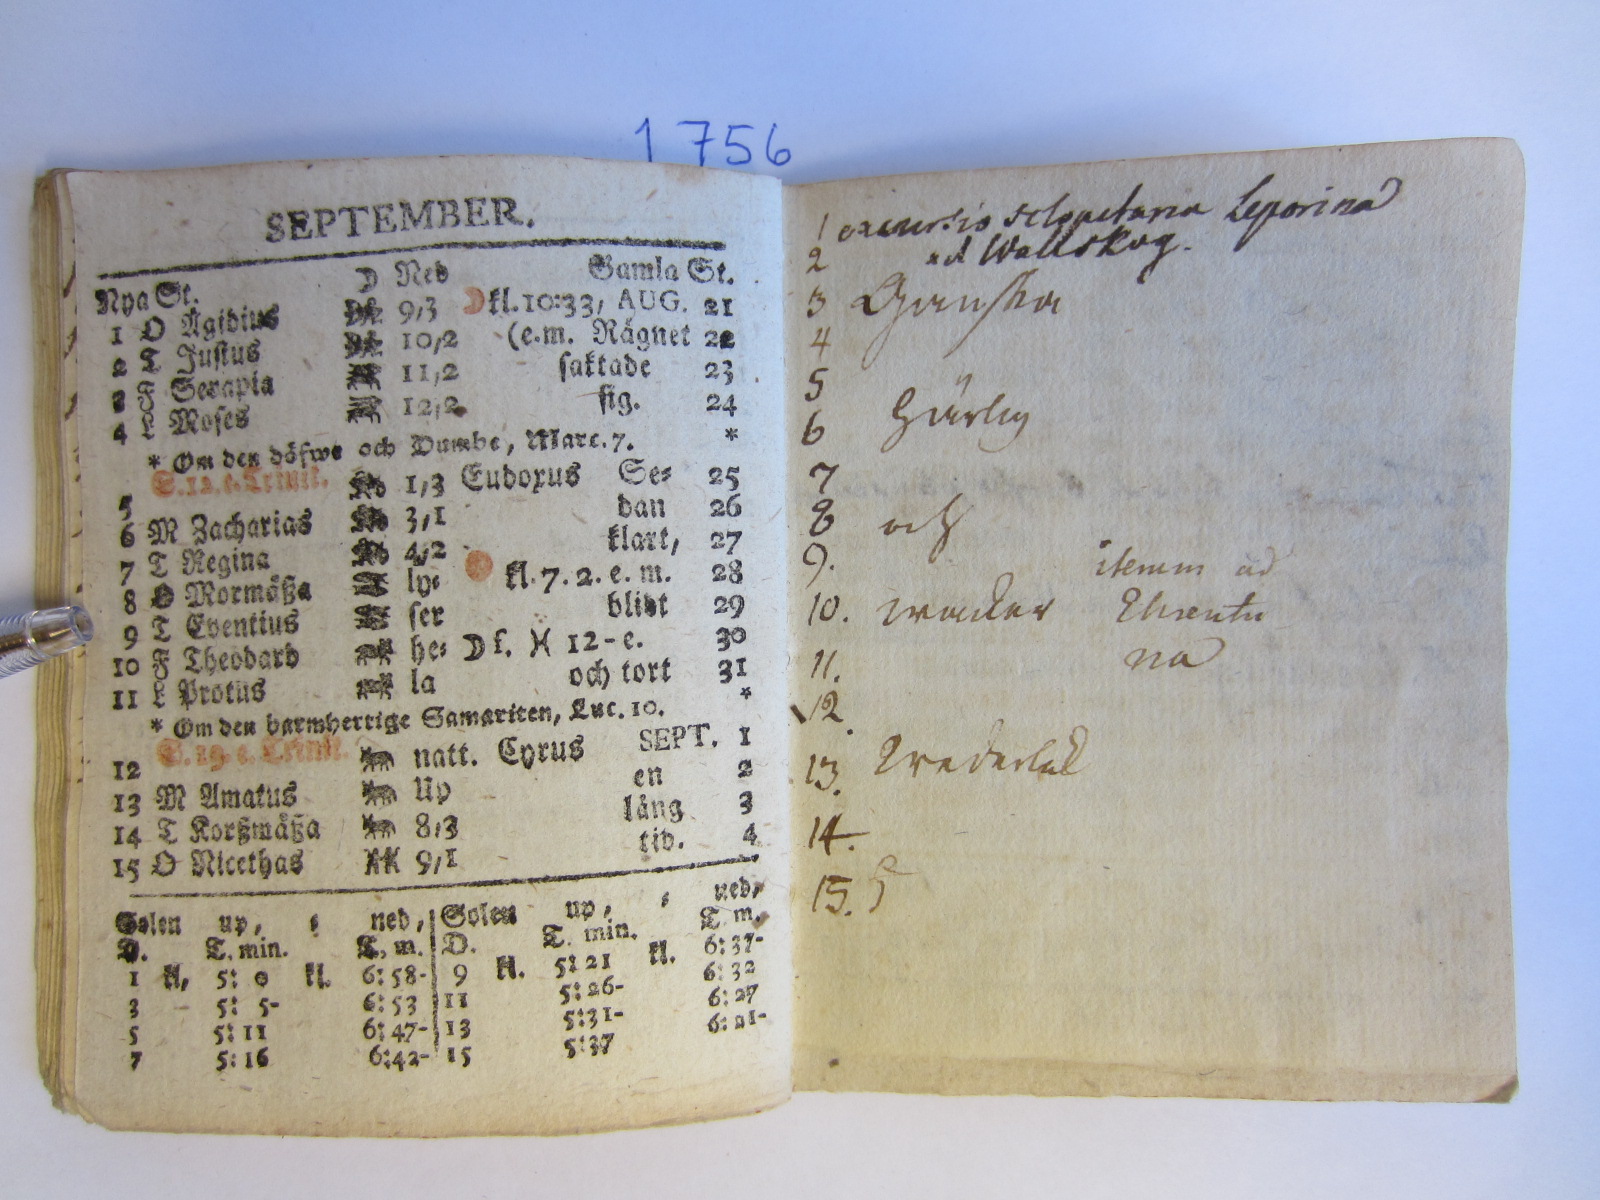 1756
SEPTEMBER.
Nya St. D Ned Gamla St.
1 O Ägidius 9,3 kl. 10:33, AUG. 21
2 T Justus 10,2 (e.m. Rägnet 22
3 F Serapia 11,2 saktade 23
4 L Moses 12,2 sig. 24
* Om den döfwe och Dumbe, Marc. 7. *
5 S. 12. e. Trinit. 1,3 Eudoxus Se- 25
6 M Zacharias 3,1 dan 26
7 T Regina 4,2 klart, 27
8 O Mormäßa ly- kl. 7. 2. e. m. 28
9 T Eventius ser blidt 29
10 F Theodard he- D f. ♓ 12-e. 30
11 L Protus la och tort 31
* Om den barmhertige Samariten, Luc. 10. *
12 e. Trinit. natt. Cyrus SEPT. 1
13 M Amatus Up en 2
14 T Korßmäßa 8,3 lång 3
15 O Nicethas 9,1 tid. 4
Solen up, ned, Solen up, ned,
D. T. min. T. m. D. T. min. T. m.
1 kl. 5: 0 kl. 6: 58- 9 kl. 5: 21 kl. 6: 37-
3 5: 5- 6: 53 11 5: 26- 6: 32
5 5: 11 6: 47- 13 5: 31- 6: 27
7 5: 16 6: 42- 15 5: 37 6: 21-
1 excursio Leporina
2 ad Wallskog.
3 Ganska
4
5
6 härlig
7
8 och
9. item ad
10. wacker
11. na
12.
13. wederlek
14.
15.